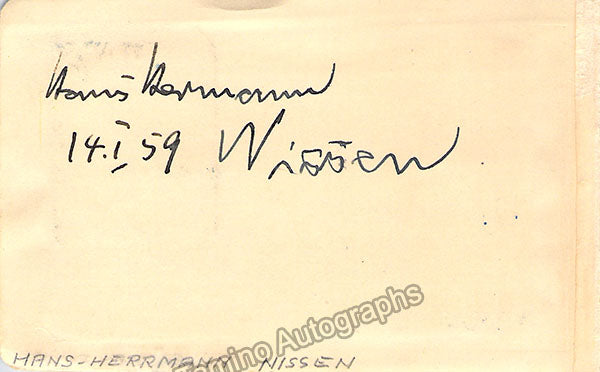 Hans Hermann
14.I 59 Nissen
Tamino Autographs
HANS-HERRMANN NISSEN